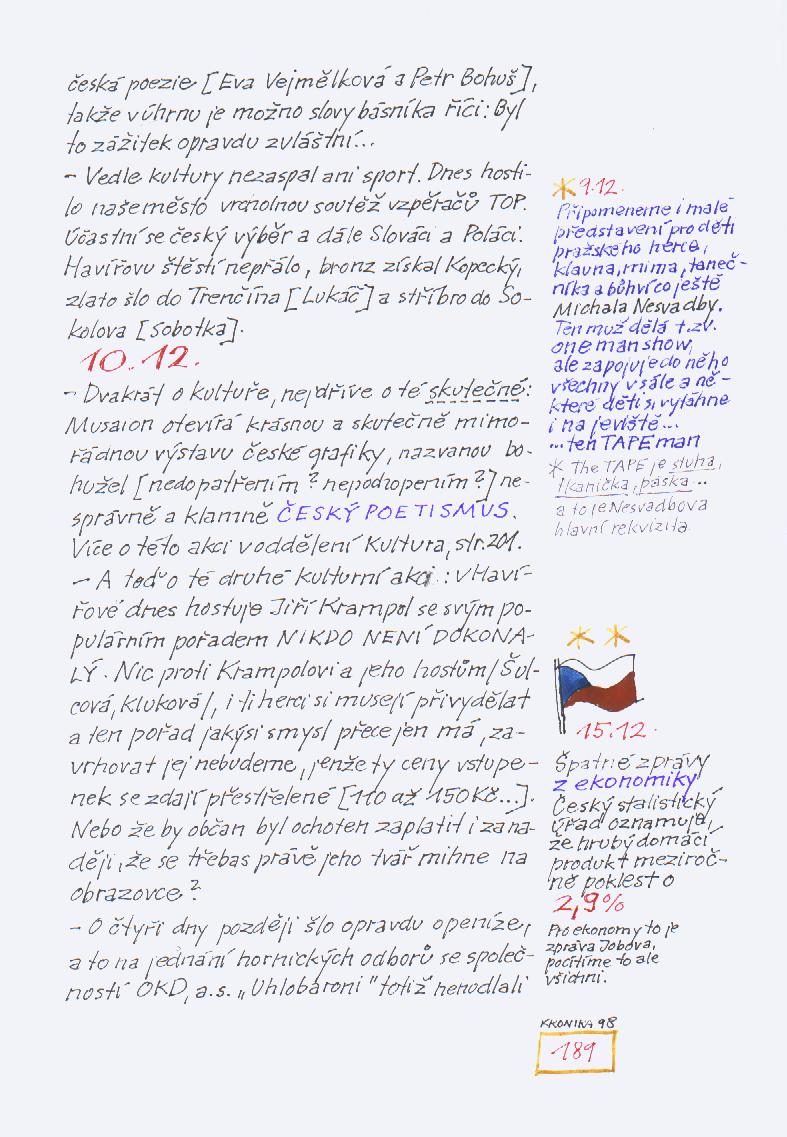 česká poezie [Eva Vejmělková a Petr Bohuš],
takže v úhrnu je možno slovy básníka říci: Byl
to zážitek opravdu zvláštní...
- Vedle kultury nezaspal ani sport. Dnes hosti-
lo naše město vrcholnou soutěž vzpěračů TOP.
Účastní se český výběr a dále Slováci a Poláci.
Havířovu štěstí nepřálo, bronz získal Kopecký,
zlato šlo do Trenčína [Lukáč] a stříbro do So-
kolova [Sobotka].
10. 12.
- Dvakrát o kultuře, nejdříve o té skutečné:
Musaion otevírá krásnou a skutečně mimo-
řádnou výstavu české grafiky, nazvanou bo-
hužel [nedopatřením? nepochopením?] ne-
správně a klamně ČESKÝ POETISMUS.
Více o této akci v oddělení Kultura, str. 201.
- A teď o té druhé kulturní akci: v Haví-
řově dnes hostuje Jiří Krampol se svým po-
pulárním pořadem NIKDO NENÍ DOKONA-
LÝ. Nic proti Krampolovi a jeho hostům /Šul-
cová, Kluková/, i ti herci si musejí přivydělat
a ten pořad jakýsi smysl přece jen má, za-
vrhovat jej nebudeme, jenže ty ceny vstupe-
nek se zdají přestřelené [110 až 150 Kč...].
Nebo že by občan byl ochoten zaplatit i za na-
ději, že se třebas právě jeho tvář mihne na
obrazovce?
- O čtyři dny později šlo opravdu o peníze,
a to na jednání hornických odborů se společ-
ností OKD, a.s. „Uhlobaroni" totiž nehodlali
* 9.12.
Připomeneme i malé
představení pro děti
pražského herce,
klauna, mima, taneč-
níka a bůhví co ještě
Michala Nesvadby.
Ten muž dělá t.zv.
one man show,
ale zapojuje do něho
všechny v sále a ně-
které děti si vytáhne
i na jeviště...
...ten TAPE man
* The TAPE je stuha,
tkanička, páska...
a to je Nesvadbova
hlavní rekvizita.
* *
15.12.
Špatné zprávy
z ekonomiky
Český statistický
úřad oznamuje,
že hrubý domácí
produkt meziroč-
ně poklesl o
2,9%
Pro ekonomy to je
zpráva Jobova,
pocítíme to ale
všichni.
KRONIKA 98
189